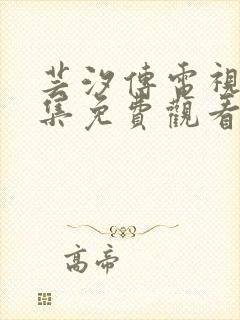 芸汐傳電視
集免費觀看
高帝